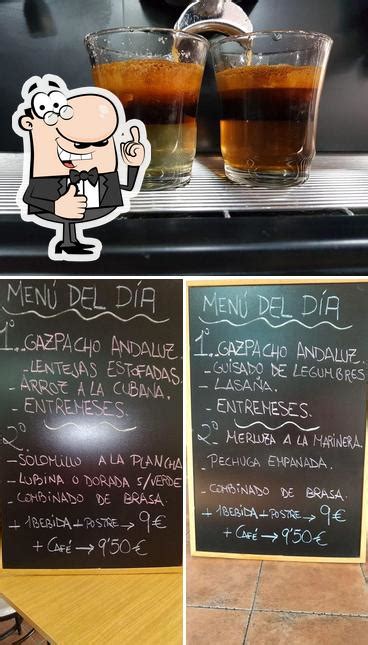 MENÚ DEL DÍA
1º.. GAZPACHO ANDALUZ.
- LENTEJAS ESTOFADAS.
- ARROZ A LA CUBANA.
- ENTREMESES.
2º
- SOLOMILLO A LA PLANCHA
- LUBINA O DORADA S/VERDE
- COMBINADO DE BRASA.
+ 1 BEBIDA + POSTRE → 9€
+ CAFÉ → 9'50€
MENÚ DEL DÍA
1º.. GAZPACHO ANDALUZ.
- GUISADO DE LEGUMBRES
- LASAÑA.
- ENTREMESES.
2º - MERLUZA A LA MARINERA.
- PECHUGA EMPANADA.
- COMBINADO DE BRASA.
+ 1 BEBIDA + POSTRE → 9€
+ CAFÉ → 9'50€